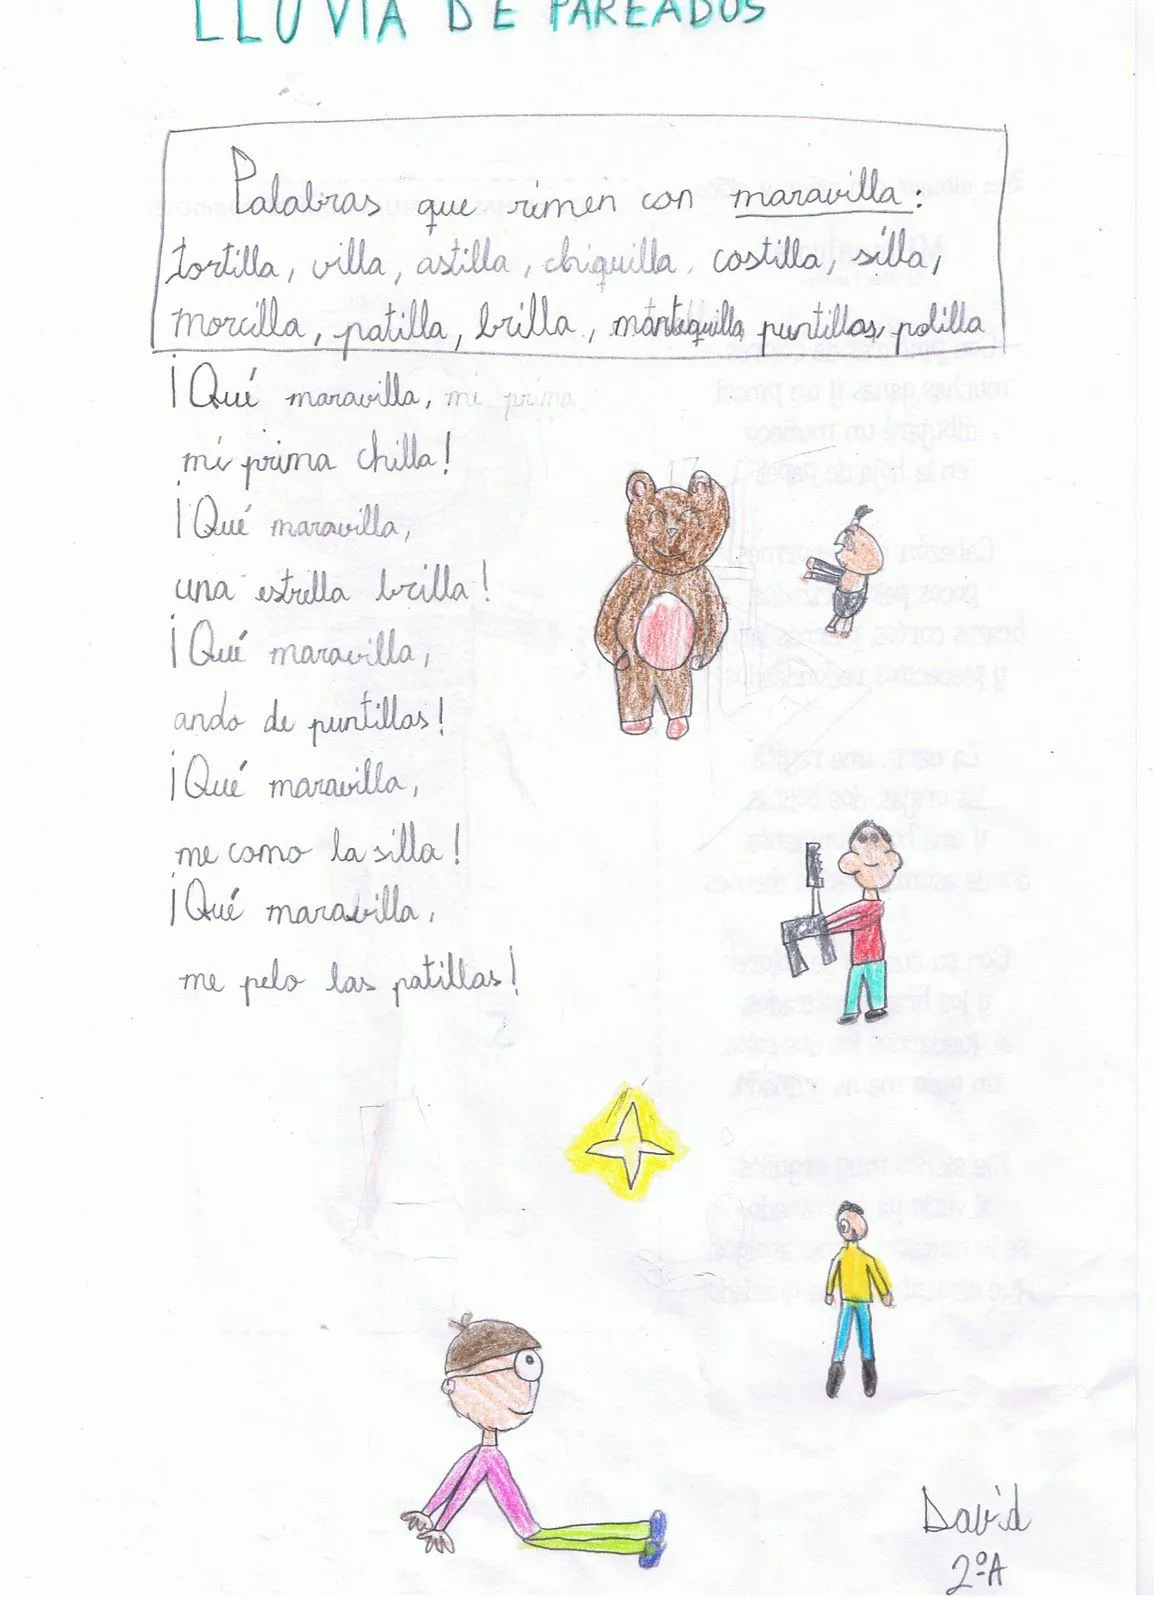 LLUVIA DE PAREADOS
Palabras que rimen con maravilla:
tortilla, villa, astilla, chiquilla, costilla, silla,
morcilla, patilla, brilla, mantequilla, puntillas, polilla
¡Qué maravilla, mi prima
mi prima chilla!
¡Qué maravilla,
una estrella brilla!
¡Qué maravilla,
ando de puntillas!
¡Qué maravilla,
me como la silla!
¡Qué maravilla,
me pelo las patillas!
David
2ºA